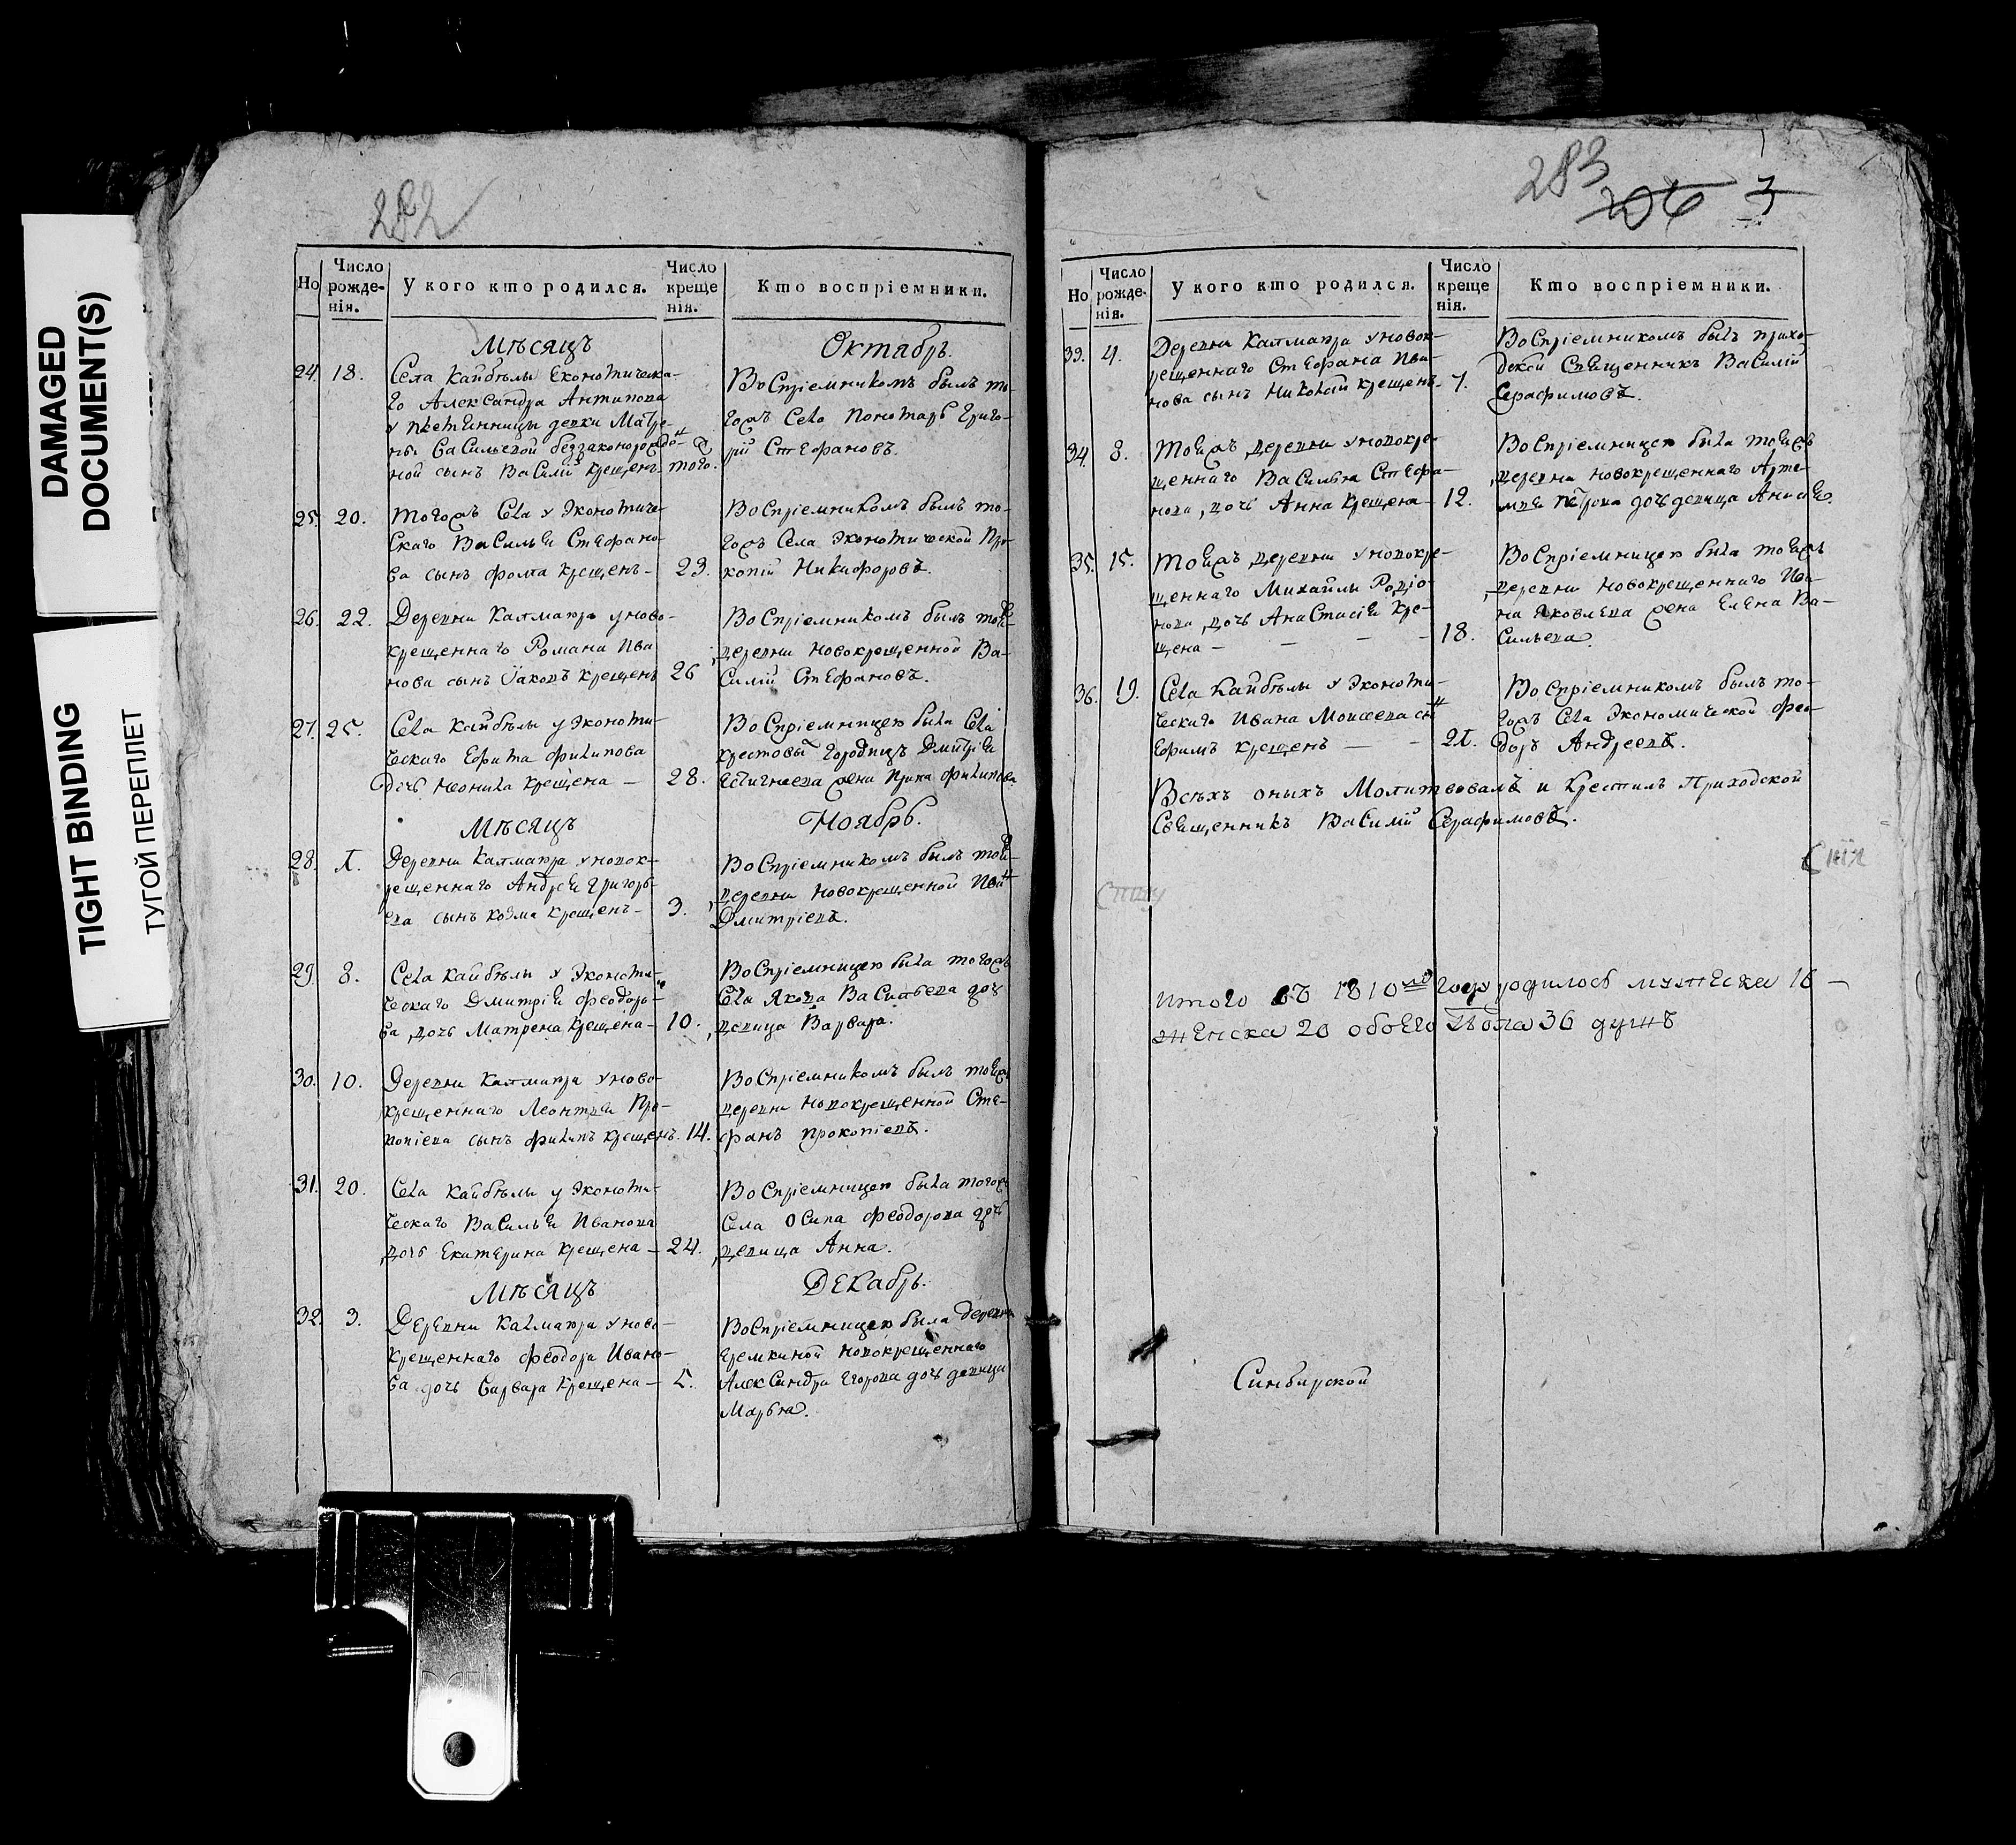 DAMAGED
DOCUMENT(S)
TIGHT BINDING
ТУГОЙ ПЕРЕПЛЕТ
282
Но
Число рожде-нія.
У кого кто родился.
Число креще нія.
Кто воспріемники.
Мѣсяцъ
Октябрь.
24. 18. Села Кайбѣлы Економическа-
го Александра Антипова
у племянницы девки Матре-
ны Васильевой беззаконорожде-
ной сынъ Василій крещенъ того.
Воспріемникомъ былъ то-
гожъ Села пономарь Григо-
рій Стефановъ.
25. 20. Тогожъ Села у Экономиче-
скаго Василья Стефано-
ва сынъ Фома крещенъ- 23.
Воспріемникомъ былъ то-
гожъ Села Экономической Про-
копій Никифоровъ.
26. 22. Деревни Калмаюра у ново-
крещеннаго Романа Ива
нова сынъ Іаковъ крещенъ 26
Воспріемникомъ былъ той
деревни новокрещенной Ва-
силій Стефановъ.
27. 25. Села Кайбѣлы у Экономи-
ческаго Ефима Филипова
дочь Неонила крещена - 28.
Воспріемницею была Села
Крестовый Городищъ Дмитрія
жена Филипова
Мѣсяцъ
Ноябрь.
28. 1. Деревни Калмаюра у новок-
рещеннаго Андрея Григорь-
ева сынъ Козма крещенъ- 3.
Воспріемникомъ былъ той
деревни новокрещенной Иван
Дмитріевъ.
29. 8. Села Кайбѣлы у Экономи-
ческаго Дмитрія Феодоро-
ва дочь Матрена крещена- 10.
Воспріемницею была тогожъ
Села Якова Васильева дочь
девица Варвара.
30. 10. Деревни Калмаюра у ново-
крещеннаго Леонтья Про-
копіева сынъ Филипъ крещенъ. 14.
Воспріемникомъ былъ тойжъ
деревни новокрещенной Сте-
фанъ Прокопіевъ.
31. 20. Села Кайбѣлы у Экономи-
ческаго Василья Иванова
дочь Екатерина крещена - 24.
Воспріемницею была тогожъ
Села Осипа Феодорова дочь
девица Анна.
Мѣсяцъ
Декабрь.
32. 3. Деревни Калмаюра у ново-
крещеннаго Феодора Ивано-
ва дочь Варвара крещена - 5.
Воспріемницею была деревни
Еремкиной новокрещеннаго
Александра Егорова дочь девица
Марья.
283
206 3
Но
Число рожде-нія.
У кого кто родился.
Число креще нія.
Кто воспріемники.
33. 4. Деревни Калмаюра у новок-
рещеннаго Стефана Ива-
нова сынъ Николай крещенъ- 7.
Воспріемникомъ былъ прихо-
дской Священникъ Василій
Серафимовъ.
34. 8. Тойжъ деревни у новокре-
щеннаго Василья Стефа-
нова, дочь Анна крещена - 12.
Воспріемницею была тойжъ
деревни новокрещеннаго Арте-
мья Петрова дочь девица
35. 15. Тойжъ деревни у новокре-
щеннаго Михайлы Родіо-
нова, дочь Анастасія кре-
щена - - - - 18.
Воспріемницею была тойжъ
деревни новокрещеннаго Ива-
на Яковлева жена Елена Ва-
сильева.
36. 19. Села Кайбѣлы у Экономи-
ческаго Ивана Моисеева сын
Ефимъ крещенъ - - 21.
Воспріемникомъ былъ то-
гожъ Села Экономической Фео-
доръ Андреевъ.
Всѣхъ оныхъ Молитвовалъ и Крестилъ Приходской
Священникъ Василій Серафимовъ.
итого въ 1810мъ году родилось мужеска 16 -
женска 20 обоего пола 36 душъ
Синбирской